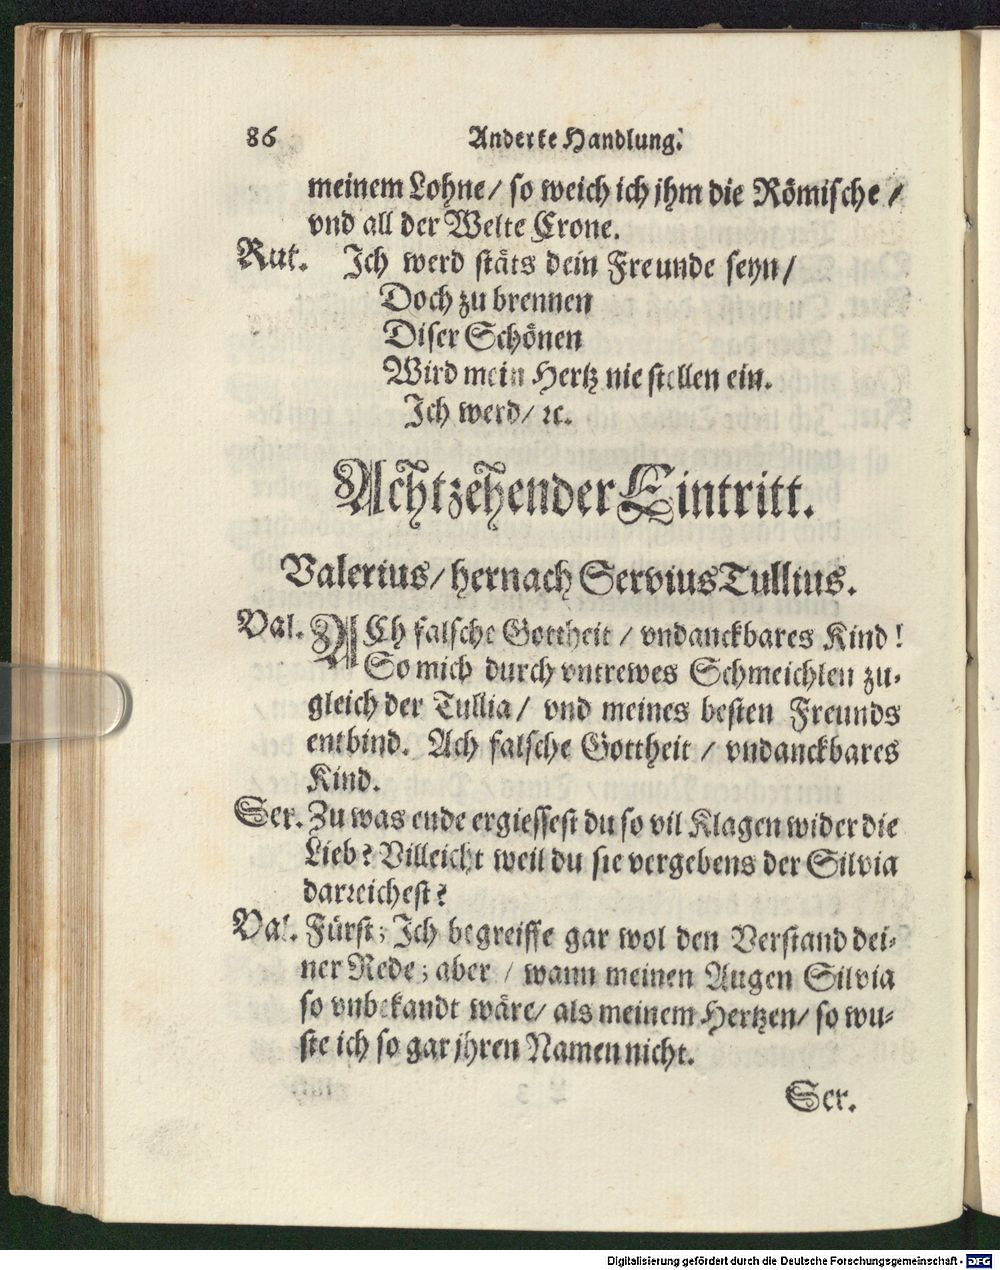 86 Anderte Handlung.
meinem Lohne/ so weich ich jhm die Römische /
vnd all der Welte Crone.
Rut. Ich werd stäts dein Freunde seyn/
Doch zu brennen
Diser Schönen
Wird mein Hertz nie stellen ein.
Ich werd/ ꝛc.
Achtzehender Eintritt.
Valerius/ hernach Servius Tullius.
Val. ACh falsche Gottheit / vndanckbares Kind!
So mich durch vntrewes Schmeichlen zu-
gleich der Tullia/ vnd meines besten Freunds
entbind. Ach falsche Gottheit / vndanckbares
Kind.
Ser. Zu was ende ergiessest du so vil Klagen wider die
Lieb? Villeicht weil du sie vergebens der Silvia
darreichest?
Val. Fürst; Ich begreiffe gar wol den Verstand dei-
ner Rede; aber / wann meinen Augen Silvia
so vnbekandt wäre/ als meinem Hertzen/ so wu-
ste ich so gar jhren Namen nicht.
Ser.
Digitalisierung gefördert durch die Deutsche Forschungsgemeinschaft - DFG